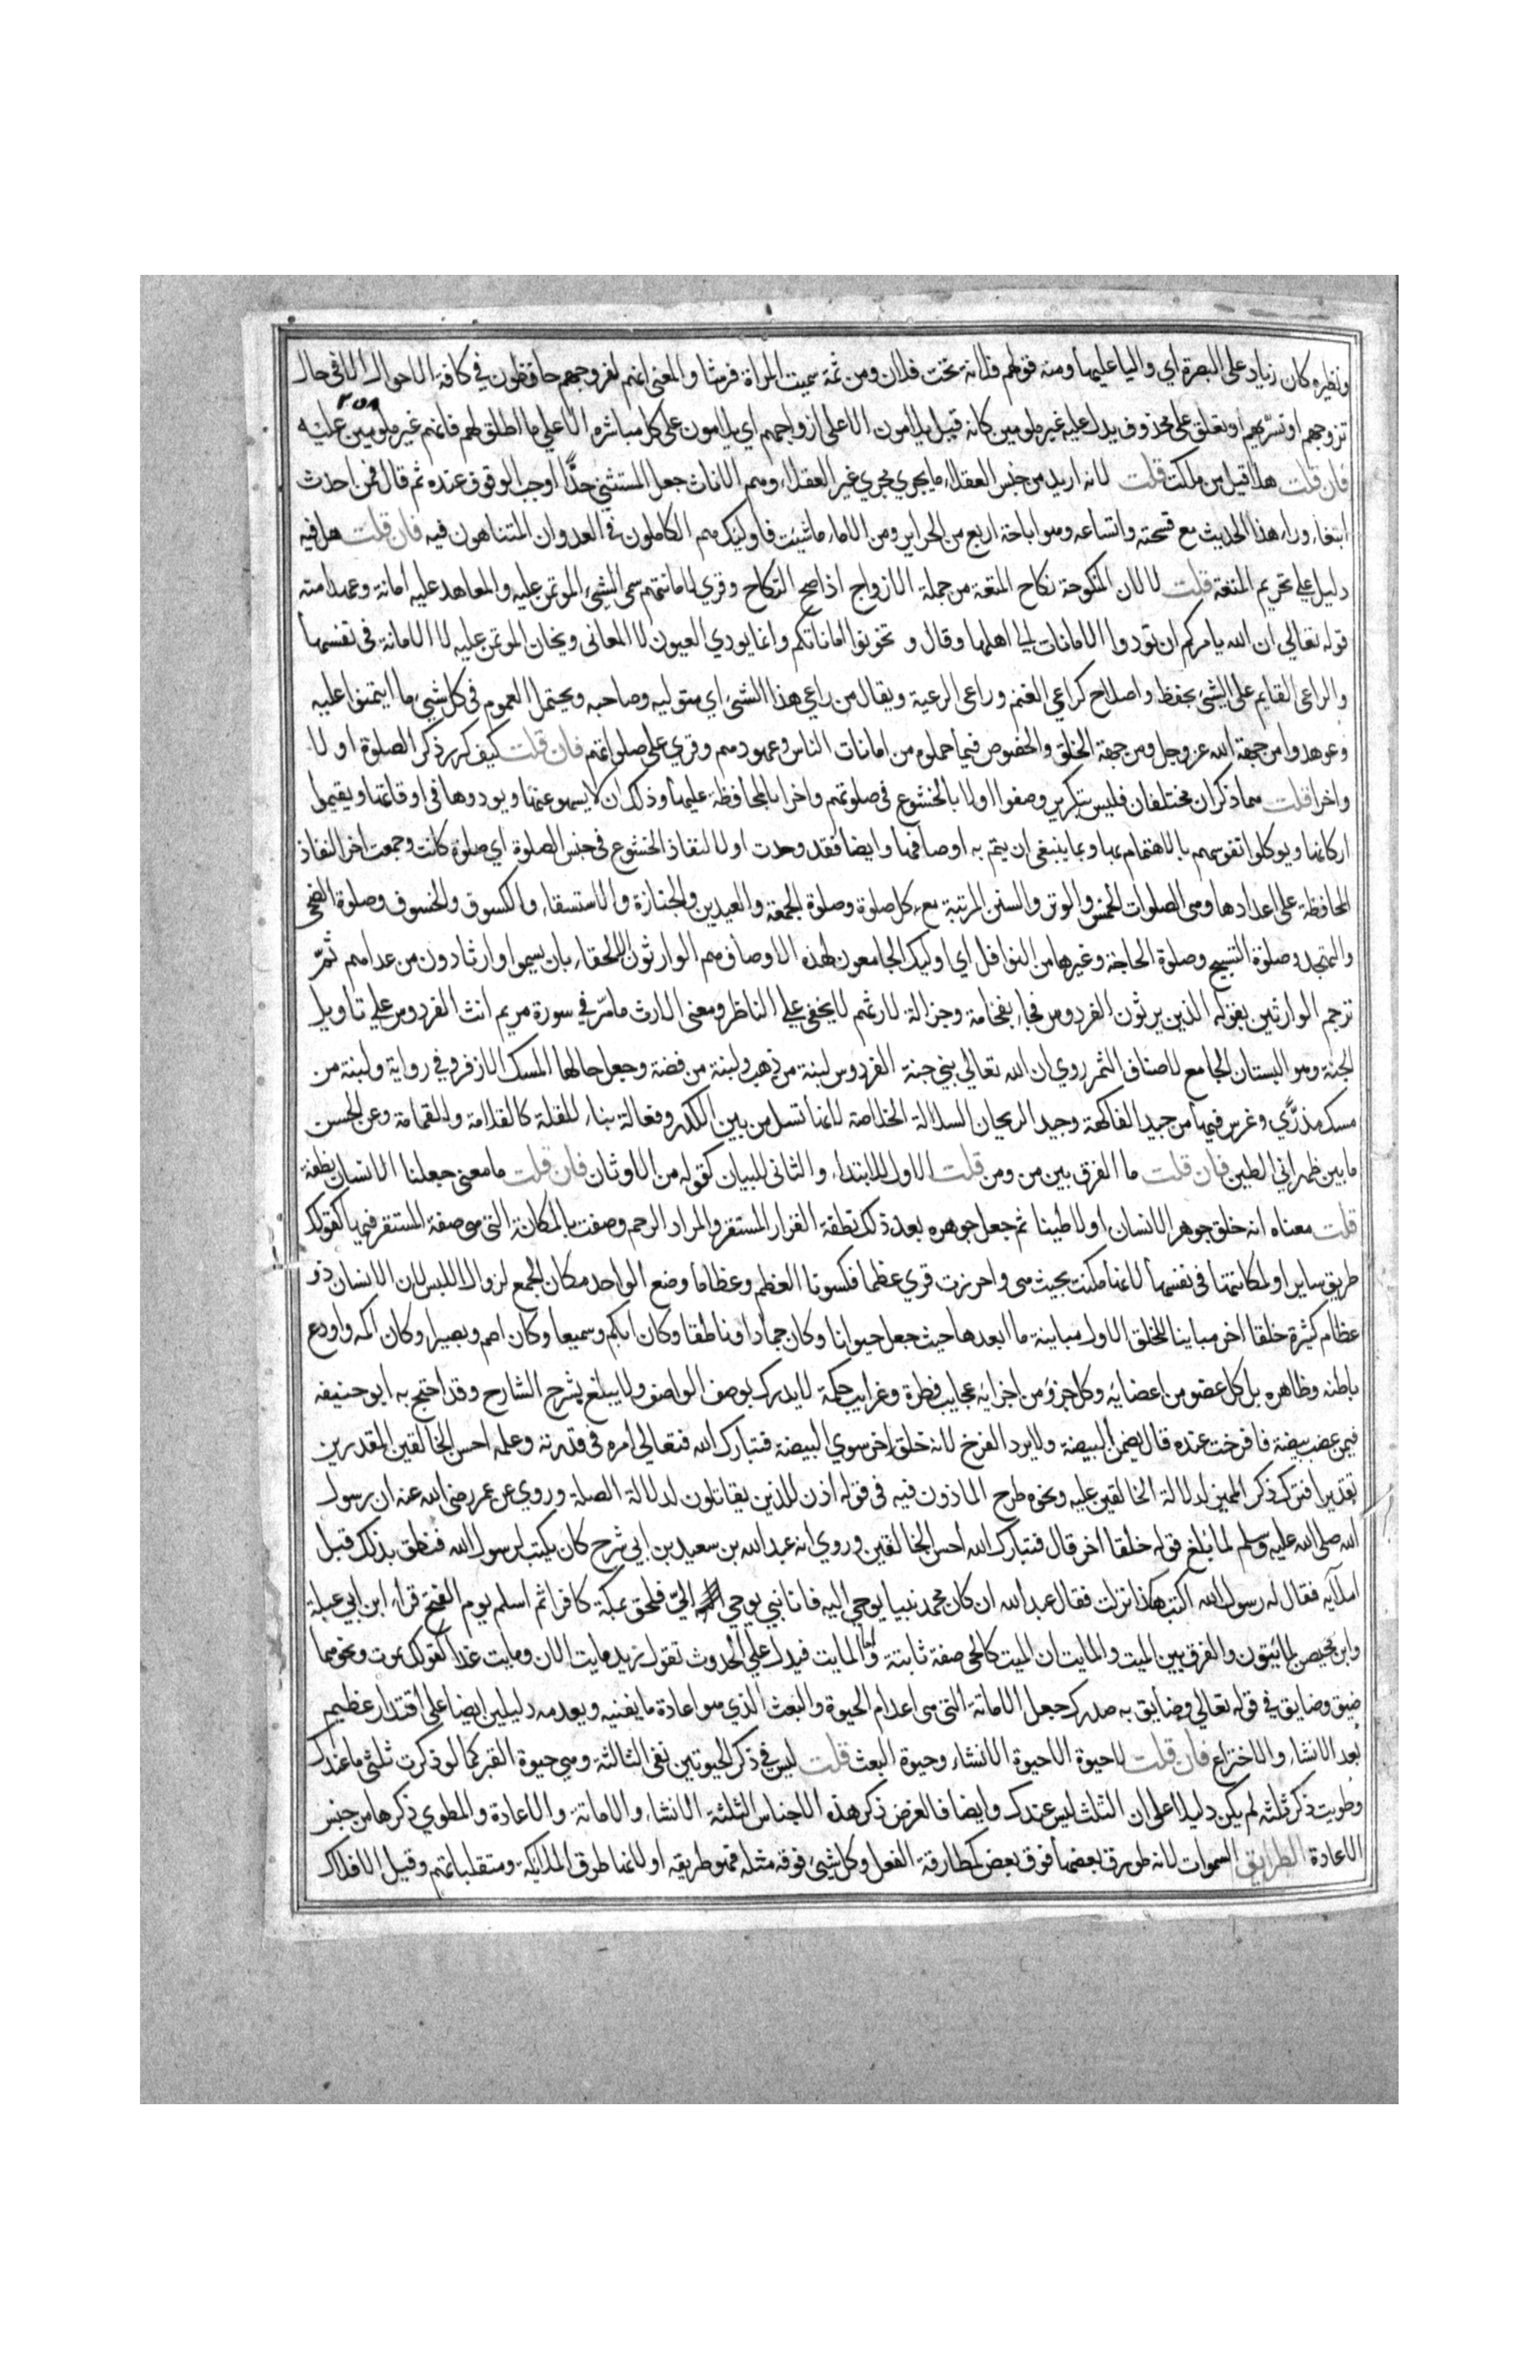 ونظيره كان زياد على البصرة اي واليا عليها ومنه قولهم فلانة تحت فلان ومن ثمة سميت المراة فرشا والمعنى انهم لفروجهم حافظون في كافة الاحوال الا في حال
٢٥٨
تزوجهم او تسريهم او تعلق على محذوف يدل عليه غير ملومين كانه قيل يلامون الا على ازواجهم اي يلامون على كل مباشرة الا على ما اطلق لهم فانهم غير ملومين عليه
فان قلت هلا قيل من ملكت قلت لانه اريد من جنس العقلاء ما يجري مجري غير العقلاء وهم الاناث جعل المستثنى حدًّا اوجب الوقوف عنده ثم قال فمن احدث
ابتغاء وراء هذا الحديث مع فسحته واتساعه وهو اباحة اربع من الحراير ومن الاماء ما شيئت فاوليك هم الكاملون في العدوان المتناهون فيه فان قلت هل فيه
دليل على تحريم المتعة قلت لا لان المنكوحة نكاح المتعة من جملة الازواج اذا صح النكاح وقري لامانتهم سمى الشيء الموتمن عليه والمعاهد عليه امانة وعهدا منه
قوله تعالي ان الله يامركم ان تودوا الامانات الى اهلها وقال و تخونوا اماناتكم وانما يودي العيون لا المعاني ويخان الموتمن عليه لا الامانة في نفسها
والراعى القايم على الشيء بحفظ واصلاح كراعي الغنم وراعى الرعية ويقال من راعي هذا الشيء اي متوليه وصاحبه ويحتمل العموم في كل شيء ما ايتمنوا عليه
وعوهدوا من جهة الله عز وجل ومن جهة الخلق والخصوص فيما حملوه من امانات الناس وعهودهم وقري على صلواتهم فان قلت كيف كرر ذكر الصلوة اولا
واخرا قلت هما ذكران مختلفان فليس بتكرير وصفوا اولا بالخشوع في صلوتهم واخرا بالمحافظة عليها وذلك ان لا يسهو عنها ويودوها في اوقاتها ويقيموا
اركانها ويوكلوا نفوسهم بالاهتمام بها وبما ينبغى ان يتم به اوصافها وايضا فقد وحدت اولا لنفاد الخشوع في جنس الصلوة اي صلوة كانت وجمعت اخر النفاد
المحافظة على اعدادها وهى الصلوات الخمس والوتر والسنن المرتبة مع كل صلوة وصلوة الجمعة والعيدين والجنازة والاستسقاء والكسوف والخسوف وصلوة الضحى
والتهجد وصلوة التسبيح وصلوة الحاجة وغيرها من النوافل اي اوليك الجامعون لهذه الاوصاف هم الوارثون الاحقاء بان يسموا وارثا دون من عداهم ثمّ
ترجم الوارثين بقوله الذين يرثون الفردوس فجاء بفخامة وجزالة لارثهم لا يخفى علي الناظر ومعنى الارث ما مرّ في سورة مريم انث الفردوس علي تاويل
الجنة وهو البستان الجامع لاصناف الثمر روي ان الله تعالي بني جنة الفردوس لبنة من ذهب ولبنة من فضة وجعل حالها المسك الازفر وفي رواية ولبنة من
مسك مذرّي وغرس فيها من جيد الفاكهة وجيد الريحان السلالة الخلاصة لانها تسل من بين الكدر وفعالة بناء للقلة كالقلامة والقمامة وعن الحسن
ما بين ظهراني الطين فان قلت ما الفرق بين من ومن قلت الاول للابتداء والثانى للبيان كقوله من الاوثان فان قلت ما معنى جعلنا الانسان نطفة
قلت معناه انه خلق جوهر الانسان اولا طينا ثم جعل جوهره بعد ذلك نطفة القرار المستقر والمراد الرحم وصفت بالمكانة التى هى صفة المستقر فيها كقولك
طريق ساير او لمكانتها في نفسها لانها مكنت بحيث هى واحرزت قري عظما فكسونا العظم وعظاما وضع الواحد مكان الجمع لزوال اللبس لان الانسان ذو
عظام كثيرة خلقا اخر مباينا للخلق الاول مباينة ما ابعدها حيث جعل حيوانا وكان جمادا وناطقا وكان ابكم وسميعا وكان اصم وبصيرا وكان اكمه واودع
باطنه وظاهره بل كل عضو من اعضايه وكل جزؤ من اجزايه عجايب فطرة وغرايب حكمة لا يدرك بوصف الواصف ولا يبلغ بشرح الشارح وقد احتج به ابو حنيفه
فيمن غصب بيضة فافرخت عنده قال يضمن البيضة ولا يرد الفرخ لانه خلق اخر سوي البيضة فتبارك الله فتعالي امره في قدرته وعلمه احسن الخالقين المقدرين
تقديرا فترك ذكر المميز لدلالة الخالقين عليه ونحوه طرح الماذون فيه في قوله اذن للذين يقاتلون لدلالة الصلة وروي عن عمر رضى الله عنه ان رسول
الله صلى الله عليه وسلم لما بلغ قوله خلقا اخر قال فتبارك الله أحسن الخالقين وروي انه عبد الله بن سعيد بن ابي شرح كان يكتب لرسول الله فنطق بذلك قبل
املايه فقال له رسول الله اكتب هكذا نزلت فقال عبد الله ان كان محمد نبيا يوحي اليه فانا نبي يوحي اليّ فلحق بمكة كافرا ثم اسلم يوم الفتح قراء ابن ابي عبلة
وابن محيصن لمائتون والفرق بين الميت والمايت ان الميت كالحى صفة ثابتة واما المايت فيدل علي الحدوث تقول زيد مايت الان ومايت غدا كقولك يموت ونحوهما
ضيق وضايق في قوله تعالي وضايق به صدرك جعل الاماتة التى هى اعدام الحيوة والبعث الذي هو اعادة ما يفنيه ويعدمه دليلين ايضا على اقتدار عظيم
بعد الانشاء والاختراع فان قلت لا حيوة الا حيوة الانشاء وحيوة البعث قلت ليس في ذكر الحيوتين نفى الثالثة وهي حيوة القبر كما لو ذكرت ثلثي ما عندك
وطويت ذكر ثلثه لم يكن دليلا على ان الثلث ليس عندك وايضا فالغرض ذكر هذه الاجناس الثلثة الانشاء والاماتة والاعادة والمطوي ذكرها من جنس
الاعادة الطرايق السموات لانه طورق بعضها فوق بعض كمطارقة الفعل وكل شيء فوقه مثله فهو طريقه او لانها طرق الملايكة ومتقلباتهم وقيل الافلاك